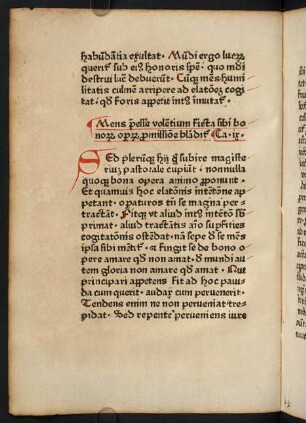 habūdātia exultat · Mūdi ergo lucꝝ
querit̄ sub eiꝰ honoris spē · quo mūdi
destrui lucͣ debuerūt · Cūqꝫ mens humi
litatis culmē arripere ad elatōeꝫ cogi
tat · qd̄ Foris appetit intꝰ īmutat̄ ·
Mens p̄esse volētium Ficta sibi bo
noꝝ opeꝝ ꝓmissiōe blādit̄ · Ca · ix ·
Sed plerūqꝫ hij qͥ subire magiste
riuꝫ pastorale cupiūt · nonnulla
quoqꝫ bona opera animo ꝓponunt ·
Et quamuis hoc elatōnis intētōne appe
tant · opaturos tn̄ se magna per-
tractāt · Fitqꝫ vt aliud intꝰ intētō sup
primat · aliud tractātis aīo suꝑficies
cogitatōnis ostēdat · nā sepe sͥ de mēs
ipsa sibi mētit̄ · ⁊ fingit se de bono o
pere amare qd̄ non amat · dͤ mundi au
tem gloria non amare qd̄ amat · Que
principari appetens Fit ad hoc paui
da cum querit · audax cum peruenerit ·
Tendens enim ne non perueniat tre
pidat · Sed repente perueniens iure